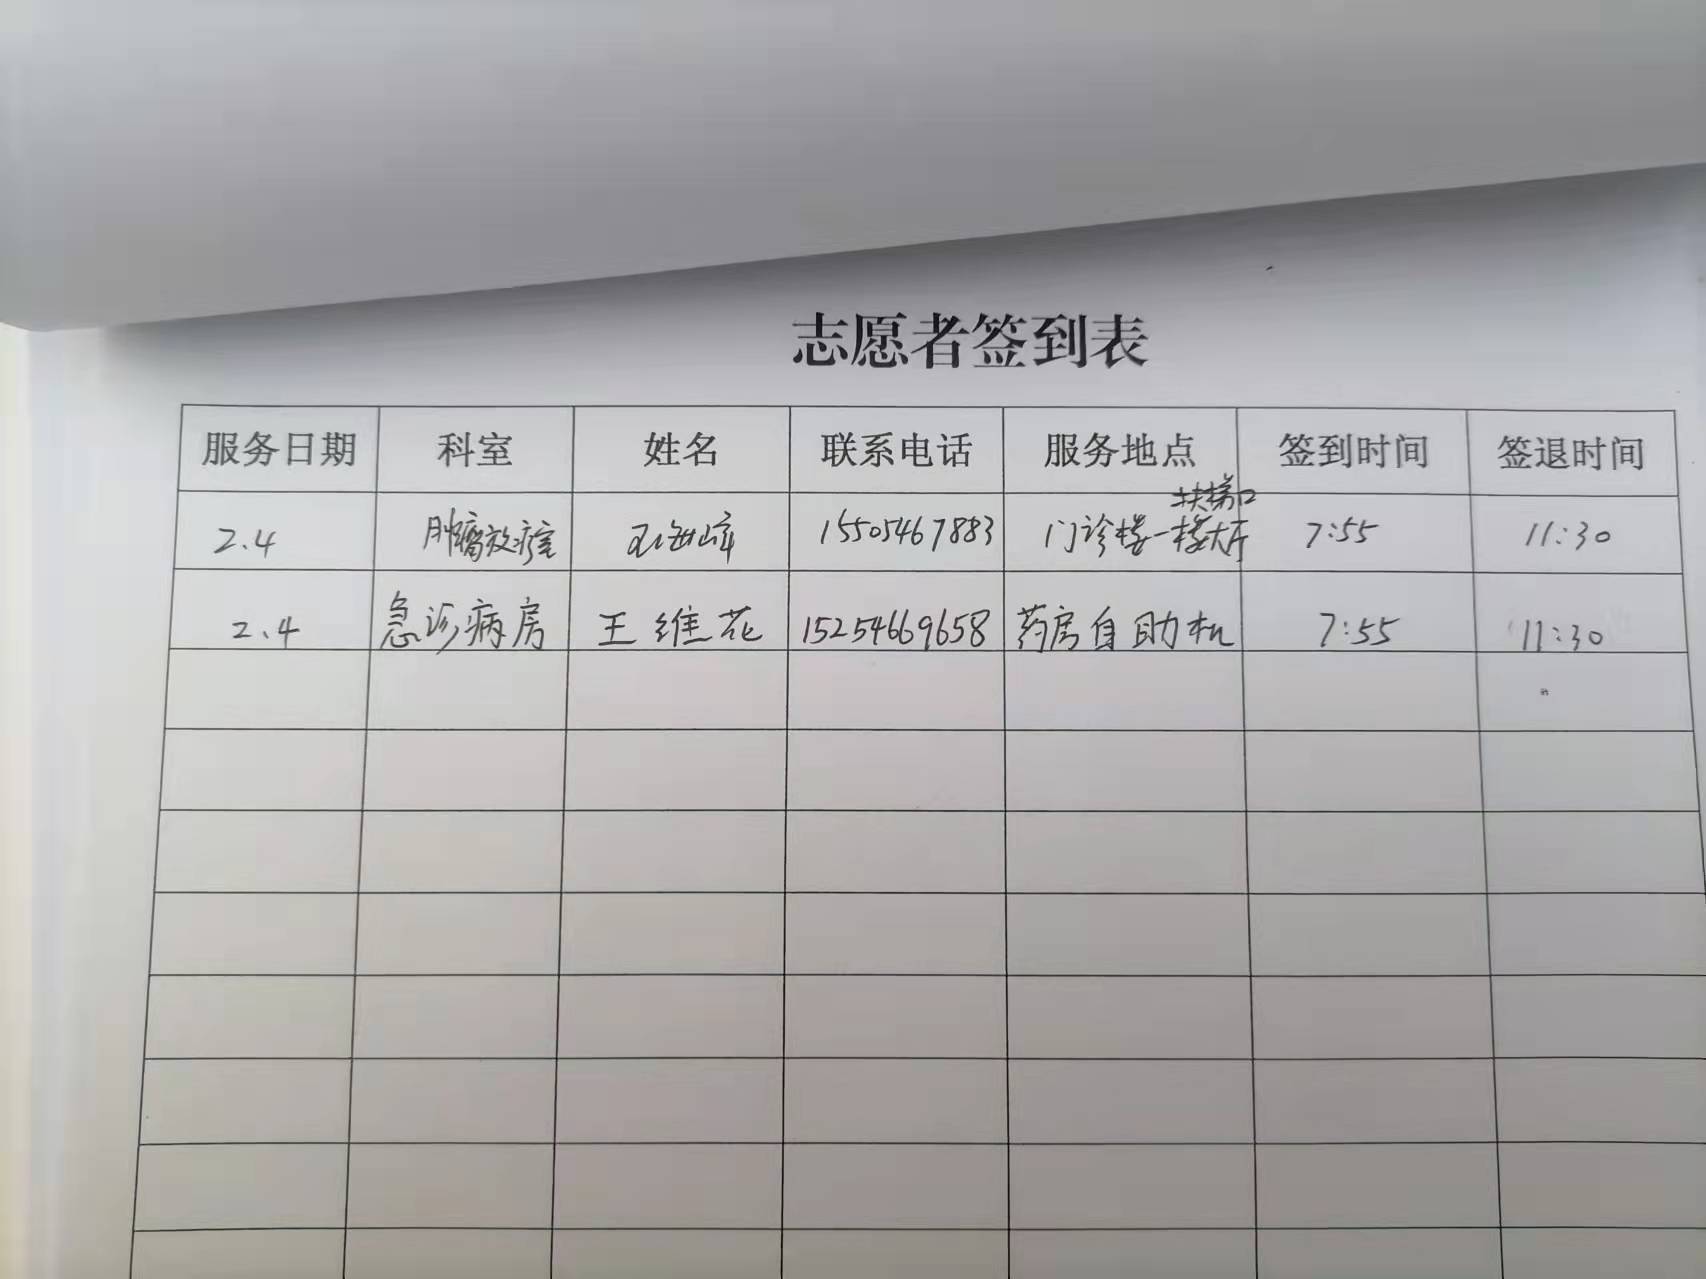 志愿者签到表
服务日期 科室 姓名 联系电话 服务地点 签到时间 签退时间
扶梯口
2.4 肿瘤放疗室 15505467883 门诊楼一楼大厅 7:55 11:30
2.4 急诊病房 王维花 15254669658 药房自助机 7:55 11:30